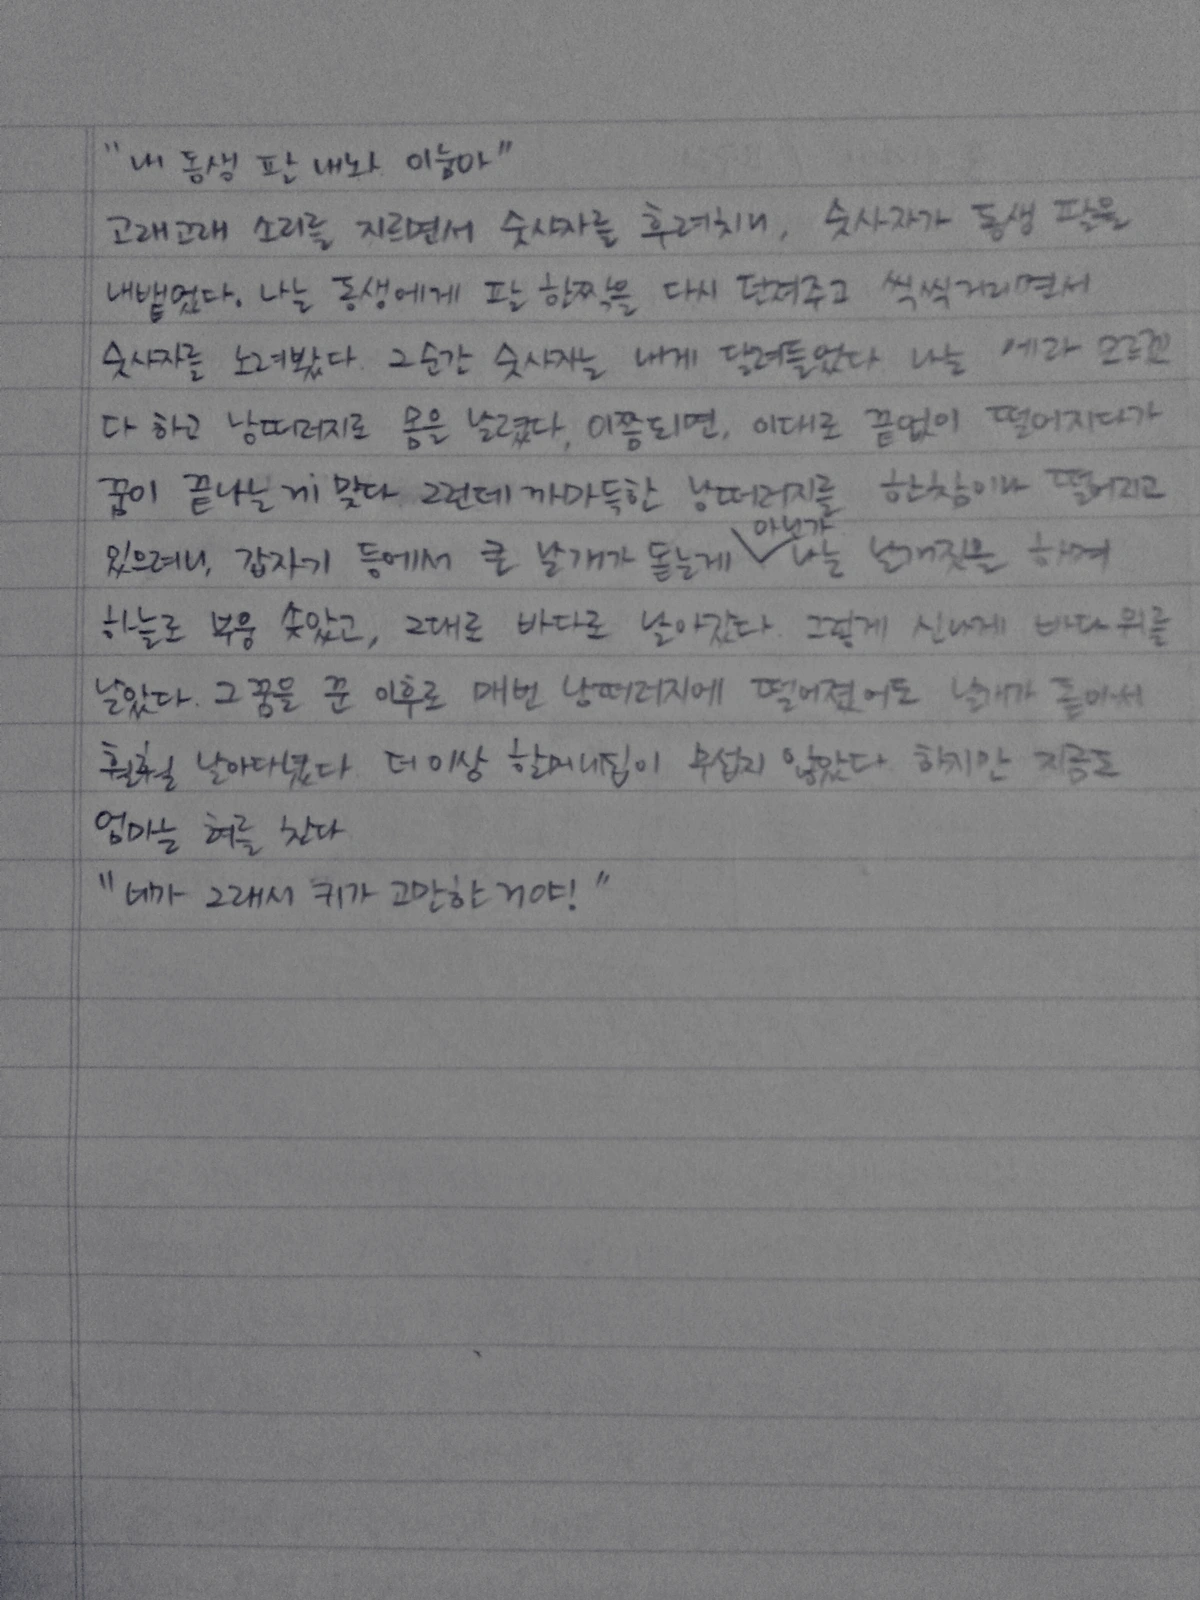 "내 동생 팔 내놔 이놈아"
고래고래 소리를 지르면서 숫사자를 후려치니, 숫사자가 동생 팔을
내뱉었다. 나는 동생에게 팔 한짝을 다시 던져주고 씩씩거리면서
숫사자를 노려봤다. 그순간 숫사자는 내게 달려들었다. 나는 에라 모르겠
다 하고 낭떠러지로 몸을 날렸다. 이쯤되면, 이대로 끝없이 떨어지다가
꿈이 끝나는게 맞다. 그런데 까마득한 낭떠러지를 한참이나 떨어지고
있으려니, 갑자기 등에서 큰 날개가 돋는게 아닌가 나는 날개짓을 하며
하늘로 부웅 솟았고, 그대로 바다로 날아갔다. 그렇게 신나게 바다 위를
날았다. 그 꿈을 꾼 이후로 매번 낭떠러지에 떨어졌어도 날개가 돋아서
훨훨 날아다녔다. 더 이상 할머니집이 무섭지 않았다. 하지만 지금도
엄마는 혀를 찬다
"네가 그래서 키가 고만한거야!"